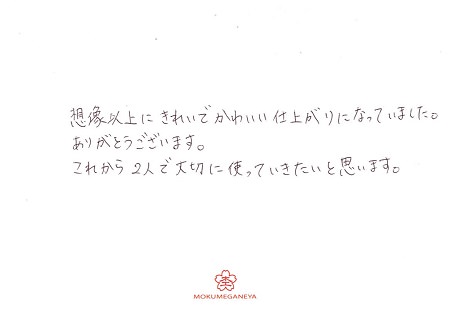 想像以上に きれいで かわいい 仕上がりになっていました。
ありがとうございます。
これから 2人で大切に使っていきたいと思います。
MOKUMEGANEYA